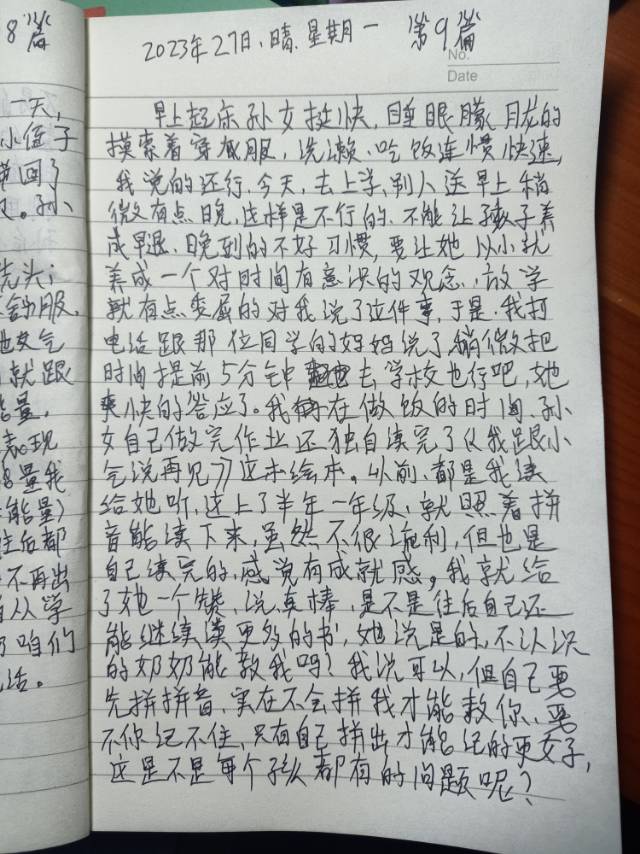 8篇
一天,
小侄子
带回了
。孙
洗头;
舒服,
她爱气
就跟
能量,
表现
能量我
能量)
往后都
不再出
从学
咱们
活。
2023年27日、晴、星期一 第9篇
No.
Date
早上起床孙女挺快,睡眼朦胧的
摸索着穿衣服,洗漱、吃饭连惯快速,
我说的还行,今天,去上学,别人送早上稍
微有点晚,这样是不行的,不能让孩子养
成早退、晚到的不好习惯,要让她从小就
养成一个对时间有意识的观念,放学
就有点委屈的对我说了这件事,于是,我打
电话跟那位同学的妈妈说了,稍微把
时间提前5分钟去学校也行吧,她
爽快的答应了。我在做饭的时间,孙
女自己做完作业还独自读完了《我跟小
气说再见》这本绘本。以前、都是我读
给她听,这上了半年一年级,就照着拼
音能读下来,虽然不很流利,但也是
自己读完的,感觉有成就感。我就给
了她一个赞、说真棒,是不是往后自己还
能继续读更多的书,她说是的,不认识
的奶奶能教我吗?我说可以,但自己要
先拼拼音,实在不会拼我才能教你、要
不你记不住,只有自己拼出才能记的更好,
这是不是每个孩子都有的问题呢?